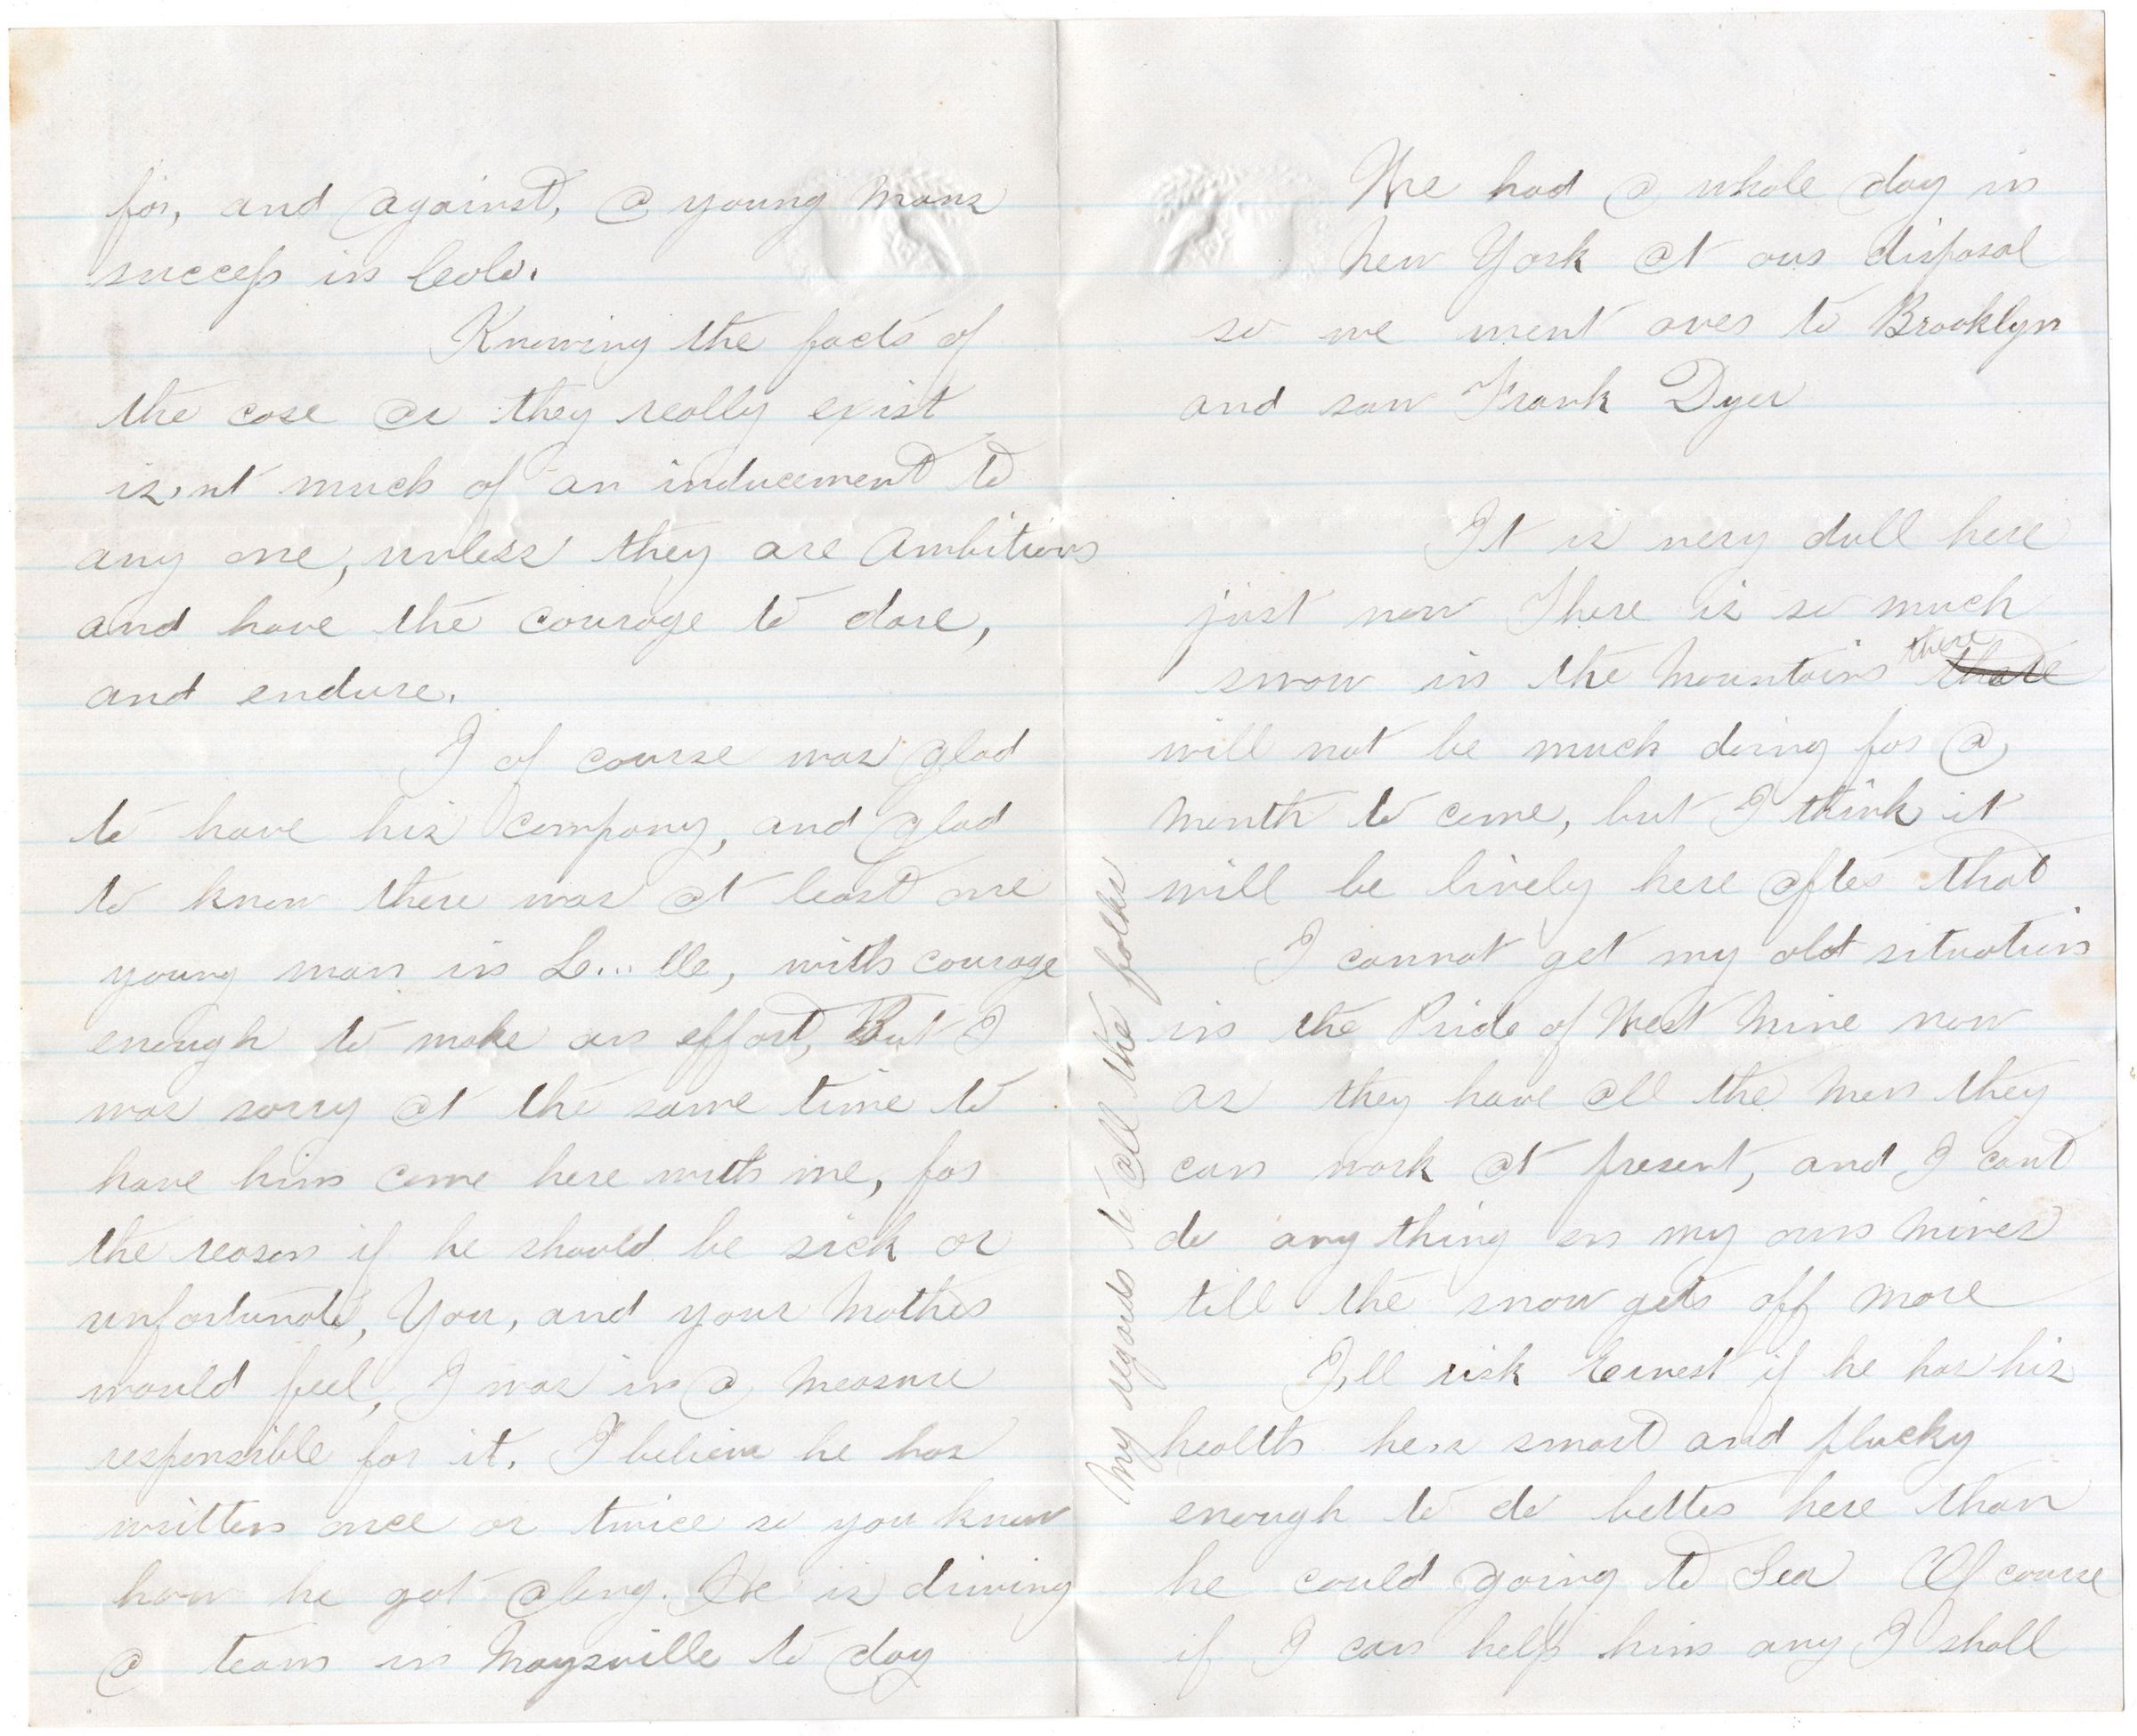 for, and against, a young mans
success in Colo.
Knowing the facts of
the case as they really exist
is,nt much of an inducement to
any one, unless they are Ambitious
and have the courage to dare,
and endure.
I of course was glad
to have his company, and glad
to know there was at least one
young man in Le... lle, with courage
enough to make an effort, But I
was sorry at the same time to
have him come here with me, for
the reason if he should be sick or
unfortunate, You, and your Mother
would feel, I was in a measure
responsible for it. I believe he has
written once or twice so you know
how he got along. He is driving
a team in Maysville to day
We had a whole day in
New York at our disposal
so we went over to Brooklyn
and saw Frank Dyer
It is very dull here
just now There is so much
snow in the Mountains there thare
will not be much doing for a
Month to come, but I think it
will be lively here after that
I cannot get my old situation
in the Pride of West Mine now
as they have all the Men they
can work at present, and I cant
do any thing on my own Mines
till the snow gets off More
I,ll risk Ernest if he has his
health he,s smart and plucky
enough to do better here than
he could going to Sea Of course
if I can help him any I shall
My regards to all the folks